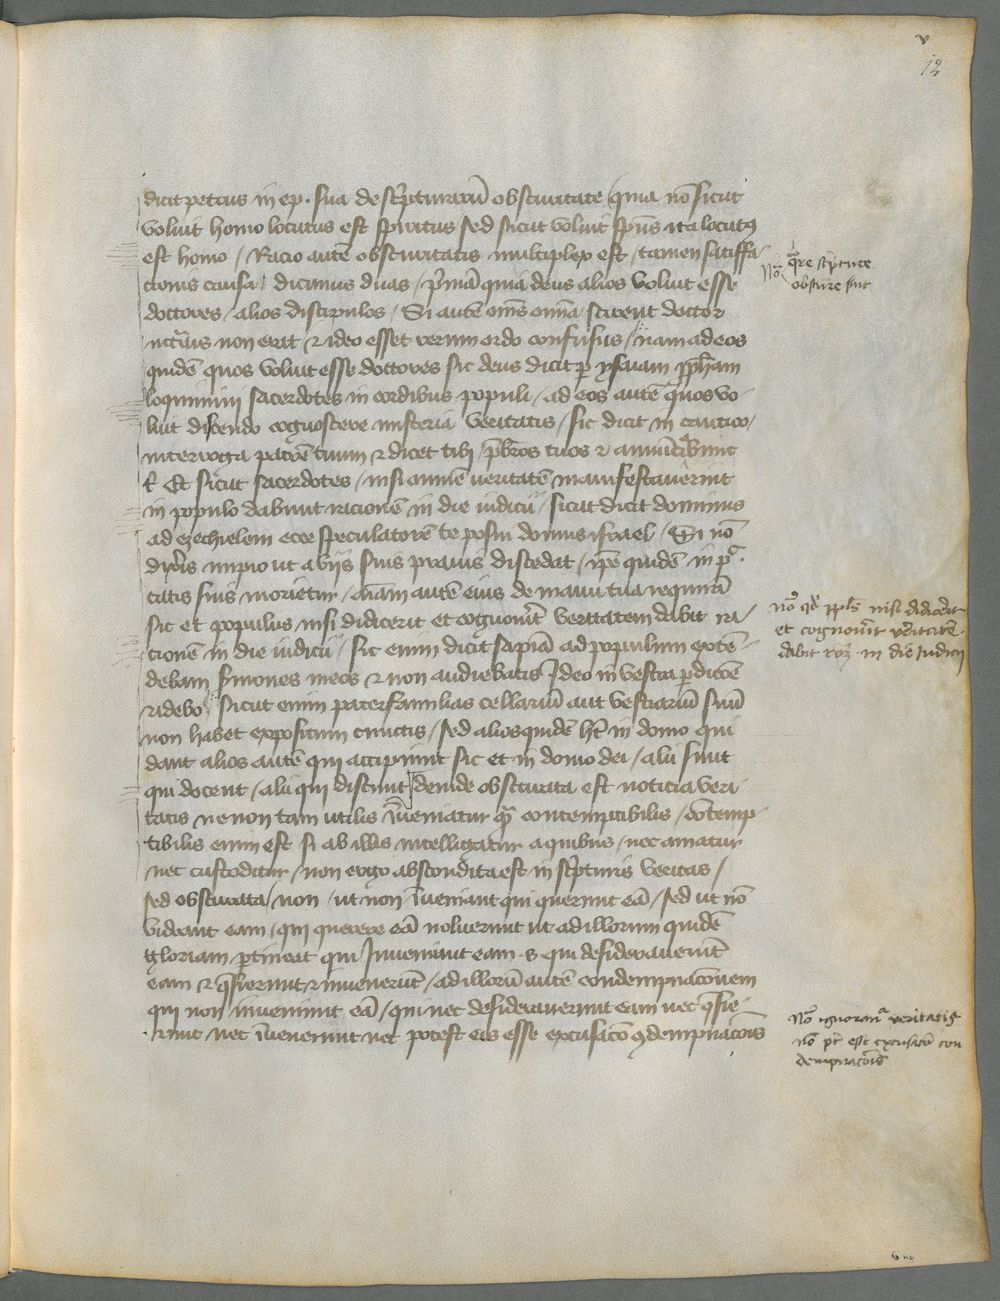 12
dicit petrus in ep. sua de sc̓pturarū obscuritate quia nō sicut
voluit homo locutus est spiritus sed sicut voluit sp̄us ita locutꝯ
est homo / Racio autē obscuritatis multiplex est / tamen satisffa
ctionis causa / dicimus duas / p̓mā quia deus alios voluit esse
doctores / alios discipulos / Si autē om̄s om̄ia scirent doctor
non erat et ideo esset rerum ordo confusus / nam ad eos
quidē quos voluit esse doctores sic deus dicit per ysaiam ꝓph̄am
loquimini sacerdotes in cordibus populi / ad eos autē quos vo
luit discendo cognoscere misteria veritatis / sic dicit in cantico /
interroga patrē tuum et dicet tibi / p̄bros tuos et annūciabunt
t̓ Et sicut sacerdotes / nisi omnē veritatē manifestaverint
in populo dabunt racionē in die iudicii / sicut dicit dominus
ad ezechielem ecce speculatorē te posui domus israel / Si nō
dix̓is impio ut a viis suis pravis discedat / ip̄e quidē in pͣ
catis suis morietur / aīam autē eius de manu tua requirā
sic et populus nisi didicerit et cognov̓it veritatem dabit ra
cionē in die iudicii / sic enim dicit sapiā ad populum extē
debam s̓mones meos et non audiebatis Ideo in vestra perdiciōē
ridebo / sicut enim paterfamilias cellariū aut vestiariū suū
non habet expositum cunctis / sed alios quidē ht̄ in domo qui
dant alios autē qui accipiunt sic et in domo dei / alii sunt
qui docent / alii qui discunt / deinde obscurata est noticia veri
tatis ne non tam utilis īveniatur qͣ contemptibilis / cōtemp
tibilis enim est si ab illis intelligatur a quibus / nec amatur
nec custoditur / non ergo abscondita est in sc̓pturis veritas /
sed obscurata / non / ut non īveniant qui querunt eā / sed ut nō
videant eam / qui querere eā noluerunt ut ad illorum quidē
gloriam pertineat qui Inveniunt eam . s . qui desideraverūt
eam et q̄sierunt et invenerūt / ad illorū autē condempnacōnem
qui non inveniunt eā / qui nec desideraverunt eam nec q̄sie
runt nec īvenerunt nec potest eis esse excusacō ꝯdempnacōis
Nō qͣre sc̓pture
obscure sūt
nō qd̓ ppl̄s nisi didic̓it
et cognov̓it v̓itatē
dabit rōꝫ in die Iudicii
Nō ignoranͣ veritatis
nō pt̓ esse excusacō con
dempnacōis